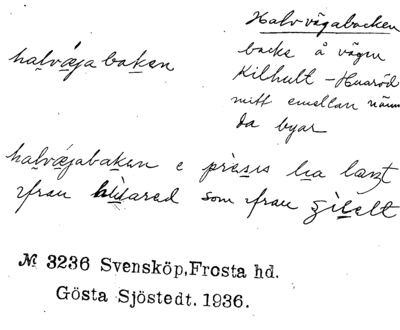 Halvvägabacken
halvæjabakɐn
backe å vägen
Kilhult – Huaröd
mitt emellan nämn
da byar
halvæjabakɐn e presis lia laŋt
frau hʉarød som frau ɕilɐlt
№ 3236 Svensköp, Frosta hd.
Gösta Sjöstedt. 1936.